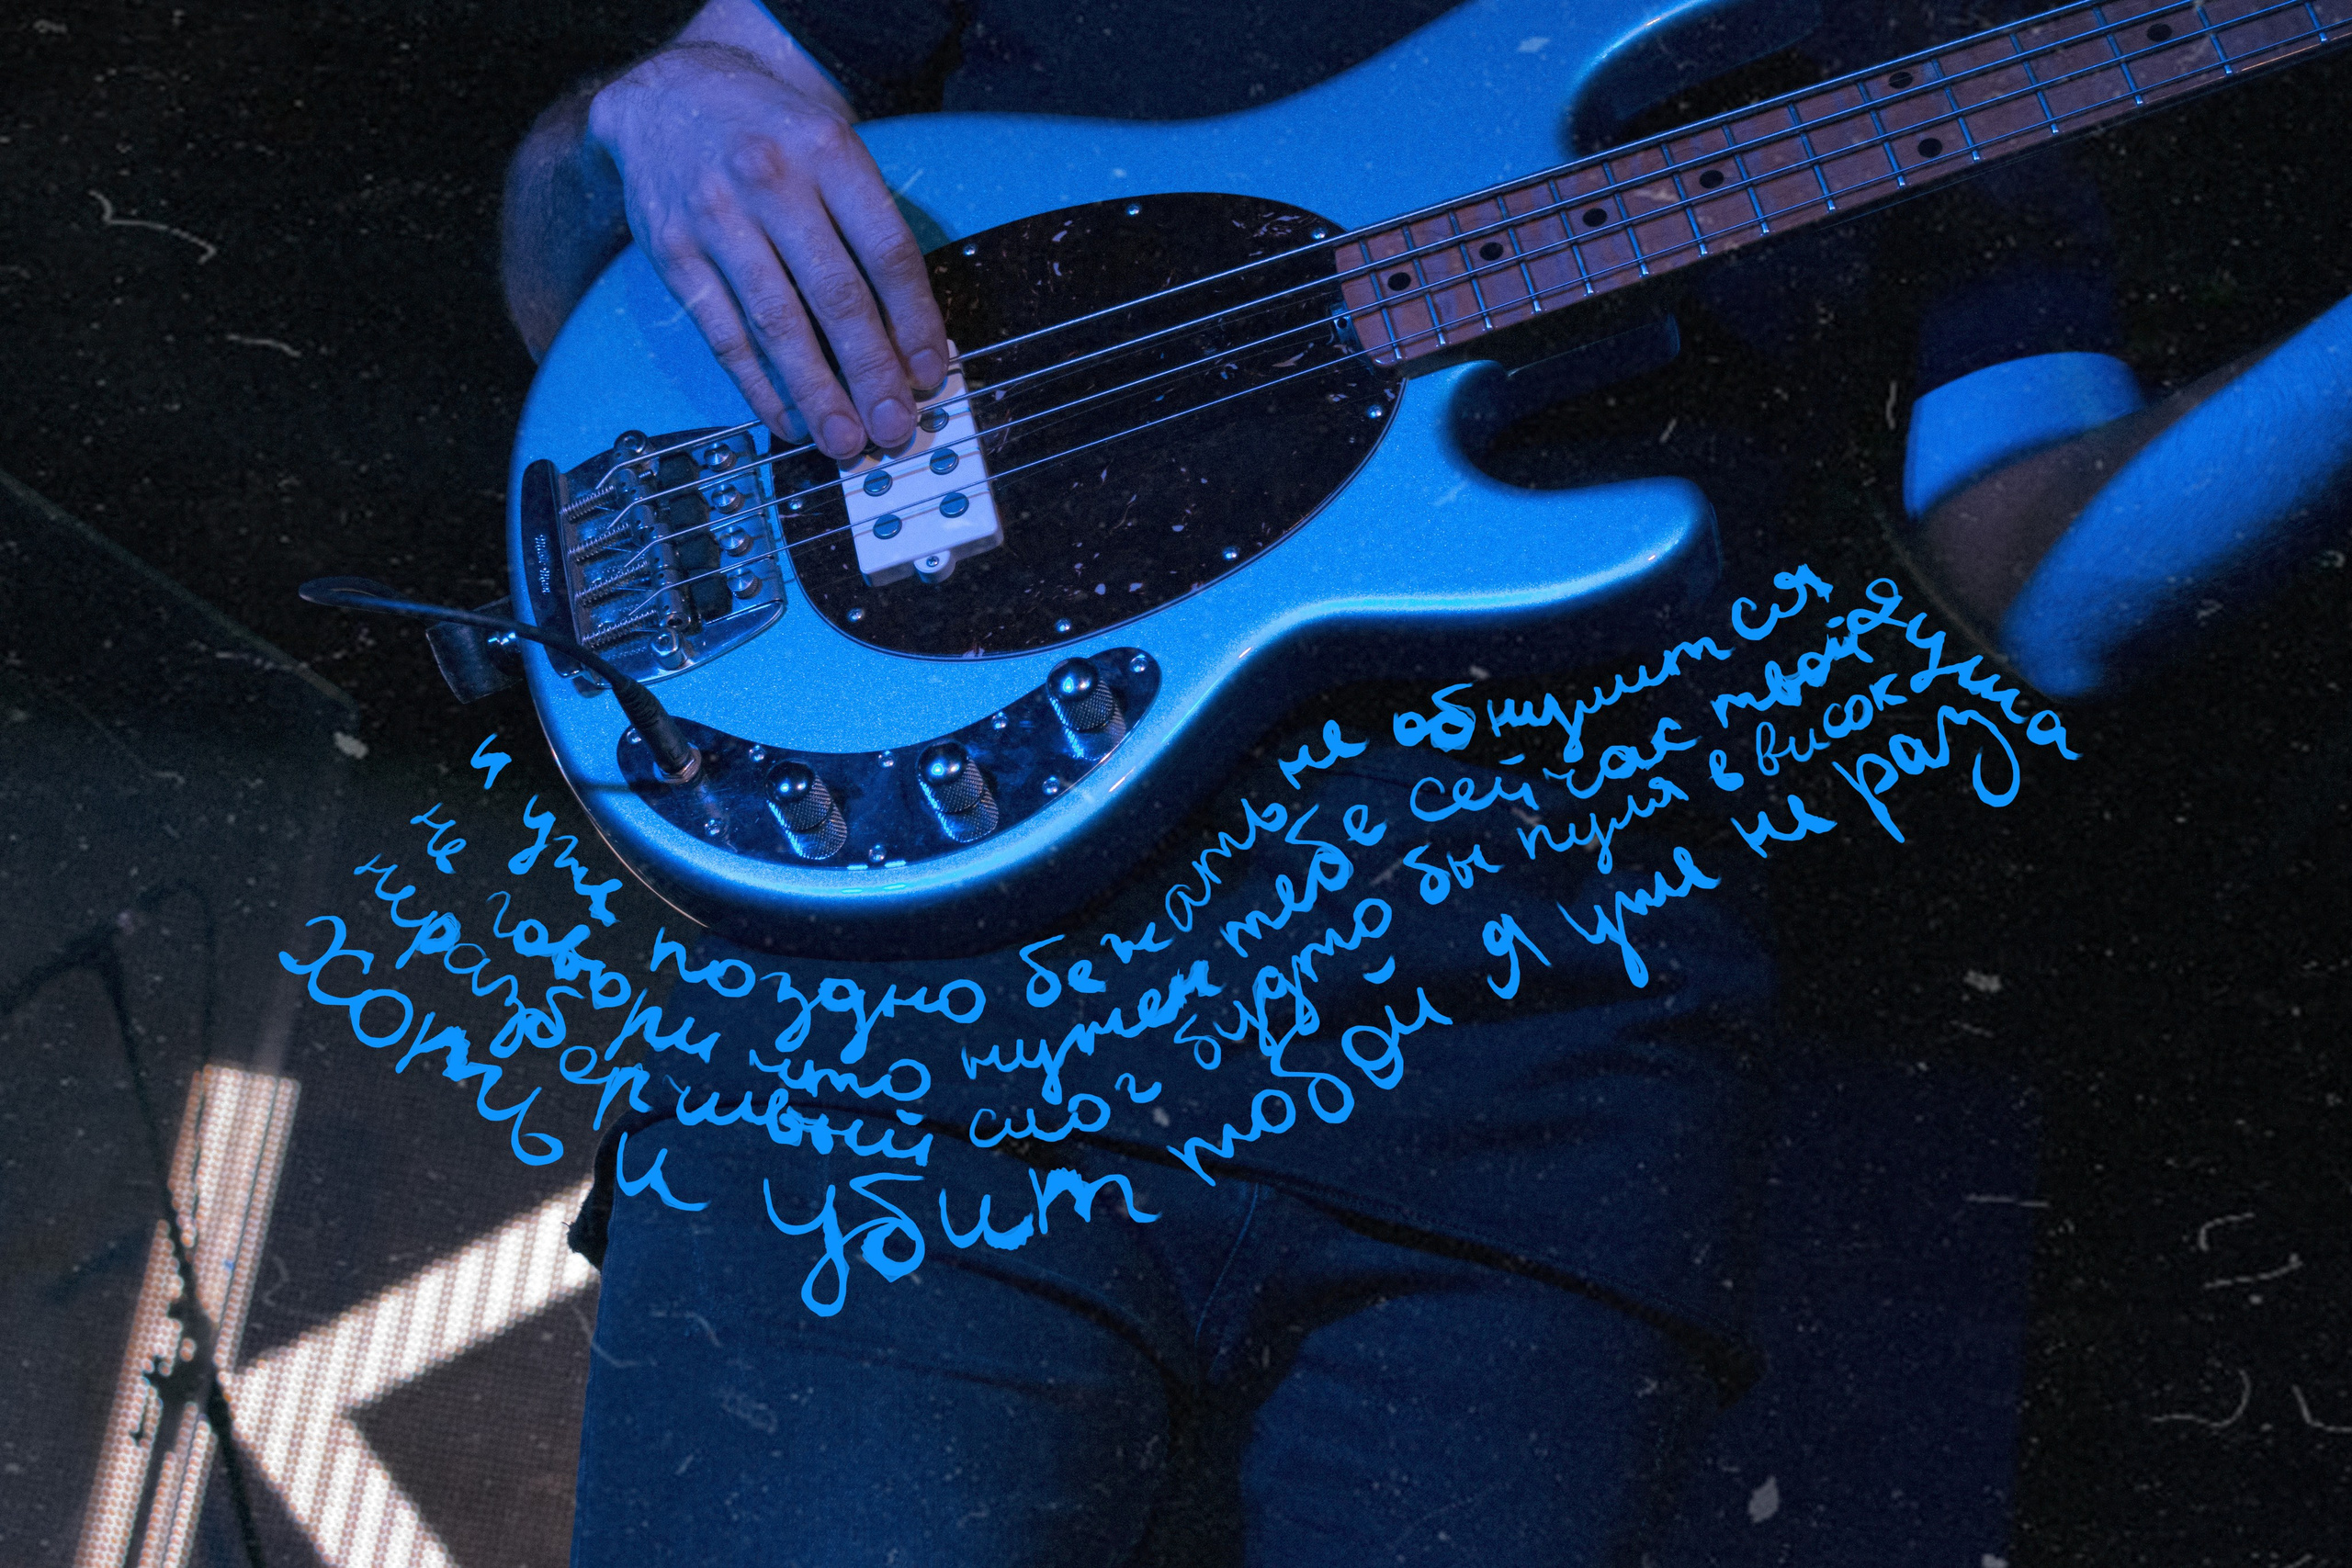 и уже поздно бежать не обнулится
не говори что нужен тебе сейчас твой душа
неразборчивый слог будто бы пуля в висок
хоть и убит тобой я уже не разу
K